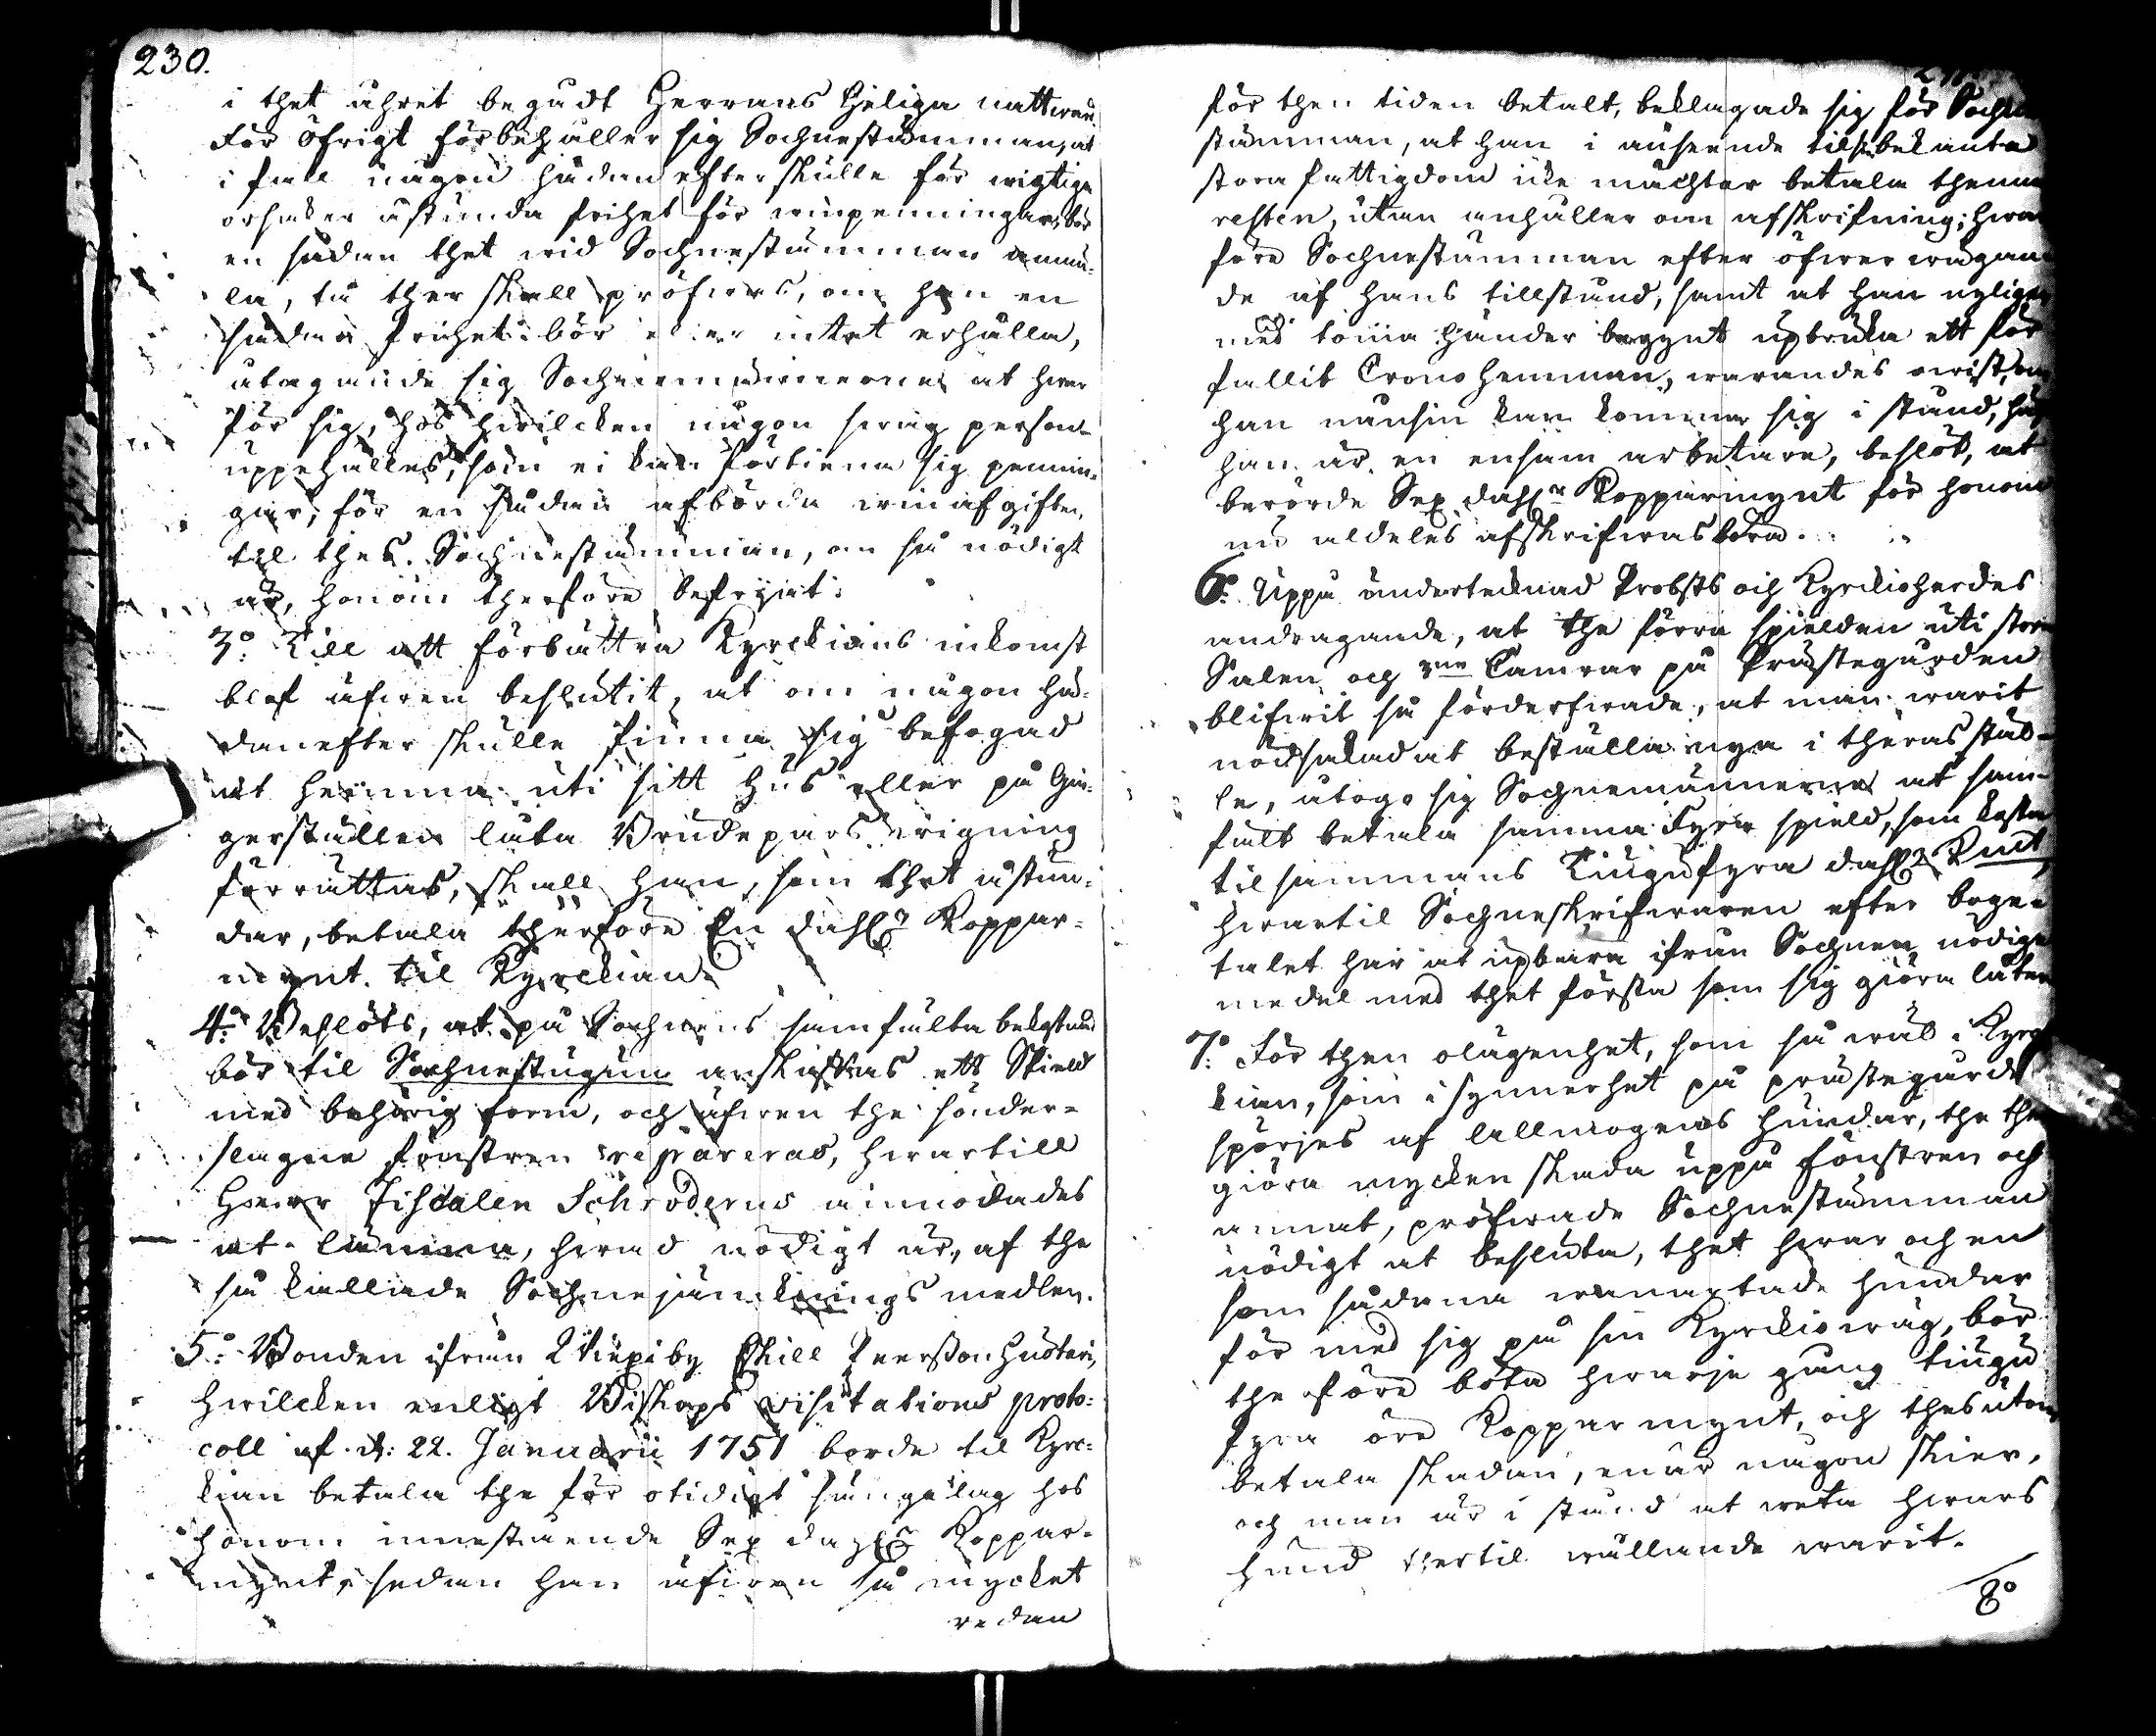 230.
i thet åhret begådt Herrans Heliga nattward.
För öfrigt förbehåller sig Sochnestämman, at
i fall någon hädanefter skulle för wigtiga
orsaker åstunda frihet för winpenningar, bör
en sådan thet wid Sochnestämman anmä-
la, tå ther skall pröfwas, om han en
sådan frihet bör eller intet erhålla,
åtagande sig Sochnemännerne at hwar
för sig, hos hwilcken någon swag person
uppehålles, som ei kan förtiena sig pennin-
gar, för en sådan afbörda winafgiften,
til thes Sochnestämman, om så nödigt
är, honom therföre befryat.
3:o Till att förbättra Kyrckians inkomst
blef äfwen beslutit, at om någon hä-
danefter skulle finna sig befogad
at hemma uti sitt hus eller på Gin-
gerställen låta Brudepars wigning
förrättas, skall han, som thet åstun-
dar, betala therföre En dahl:r Koppar-
mynt til Kyrckian.
4:o Beslöts, at på Sochnens samfälta bekostnad
bör til Sochnestugun anskaffas ett Spield
med behörig form, och äfwen the sönder-
slagne fönstren repareras, hwartill
Herr Fiscalen Schroderus anmodades
at lämna, hwad nödigt är, af the
så kallade Sochnejämknings medlen.
5:o Bonden ifrån by Eskill Peersson Hustari,
hwilcken enligt Biskops visitations proto-
coll af d: 22. Januarii 1751 borde til Kyrc-
kian betala the för otidigt sängelag hos
honom innestående Sex dahl:r Koppar-
mynt, sedan han äfwen så mycket
redan
för then tiden betalt, beklagade sig för Sochne
stämman, at han i anseende til sin bekanta
stora fattigdom icke mächtar betala thenna
resten, utan anhåller om afskrifning; hwar
före Sochnestämman efter öfwerwägan-
de af hans tillstånd, samt at han nyligen
med toma händer begynt upbruka ett för
fallit Crono hemman, warandes owist, om
han nånsin kan komma sig i stånd,
han är en ensam arbetare, beslöt, at
berörde Sex dahl:r Kopparmynt för honom
nu aldeles afskrifwas böra.
6:o Uppå undertecknad Probsts och Kyrckioherdes
andragande, at the förra spielden uti stora
Salen och Camrar på Prästegården
blifwit så förderfwade, at man warit
nödsakad at beställa nya i theras stäl-
le, åtogo sig Sochnemännerne at sam-
fält betala samma Fyra spield, som kosta
tilsammans Tiugufyra dahl:r Kmt,
hwartil Sochneskrifwaren efter böge-
talet har at upbära ifrån Sochnen nödige
medel med thet första som sig giöra låter
7:o För then olägenhet, som så wäl i Kyrc
kian, som i synnerhet på prästegården
spörjes af allmogens hundar, the ther
giöra mycken skada uppå fönstren och
annat, pröfwade Sochnestämman
nödigt at besluta, thet hwar och en
som sådana wanartade hundar
för med sig på sin Kyrckiowäg, bör
therföre böta hwarje gång tiugu
fyra öre Kopparmynt, och thesutom
betala skadan, enär någon skier,
och man är i stånd at weta hwars
hund thertil wållande warit.
8:o